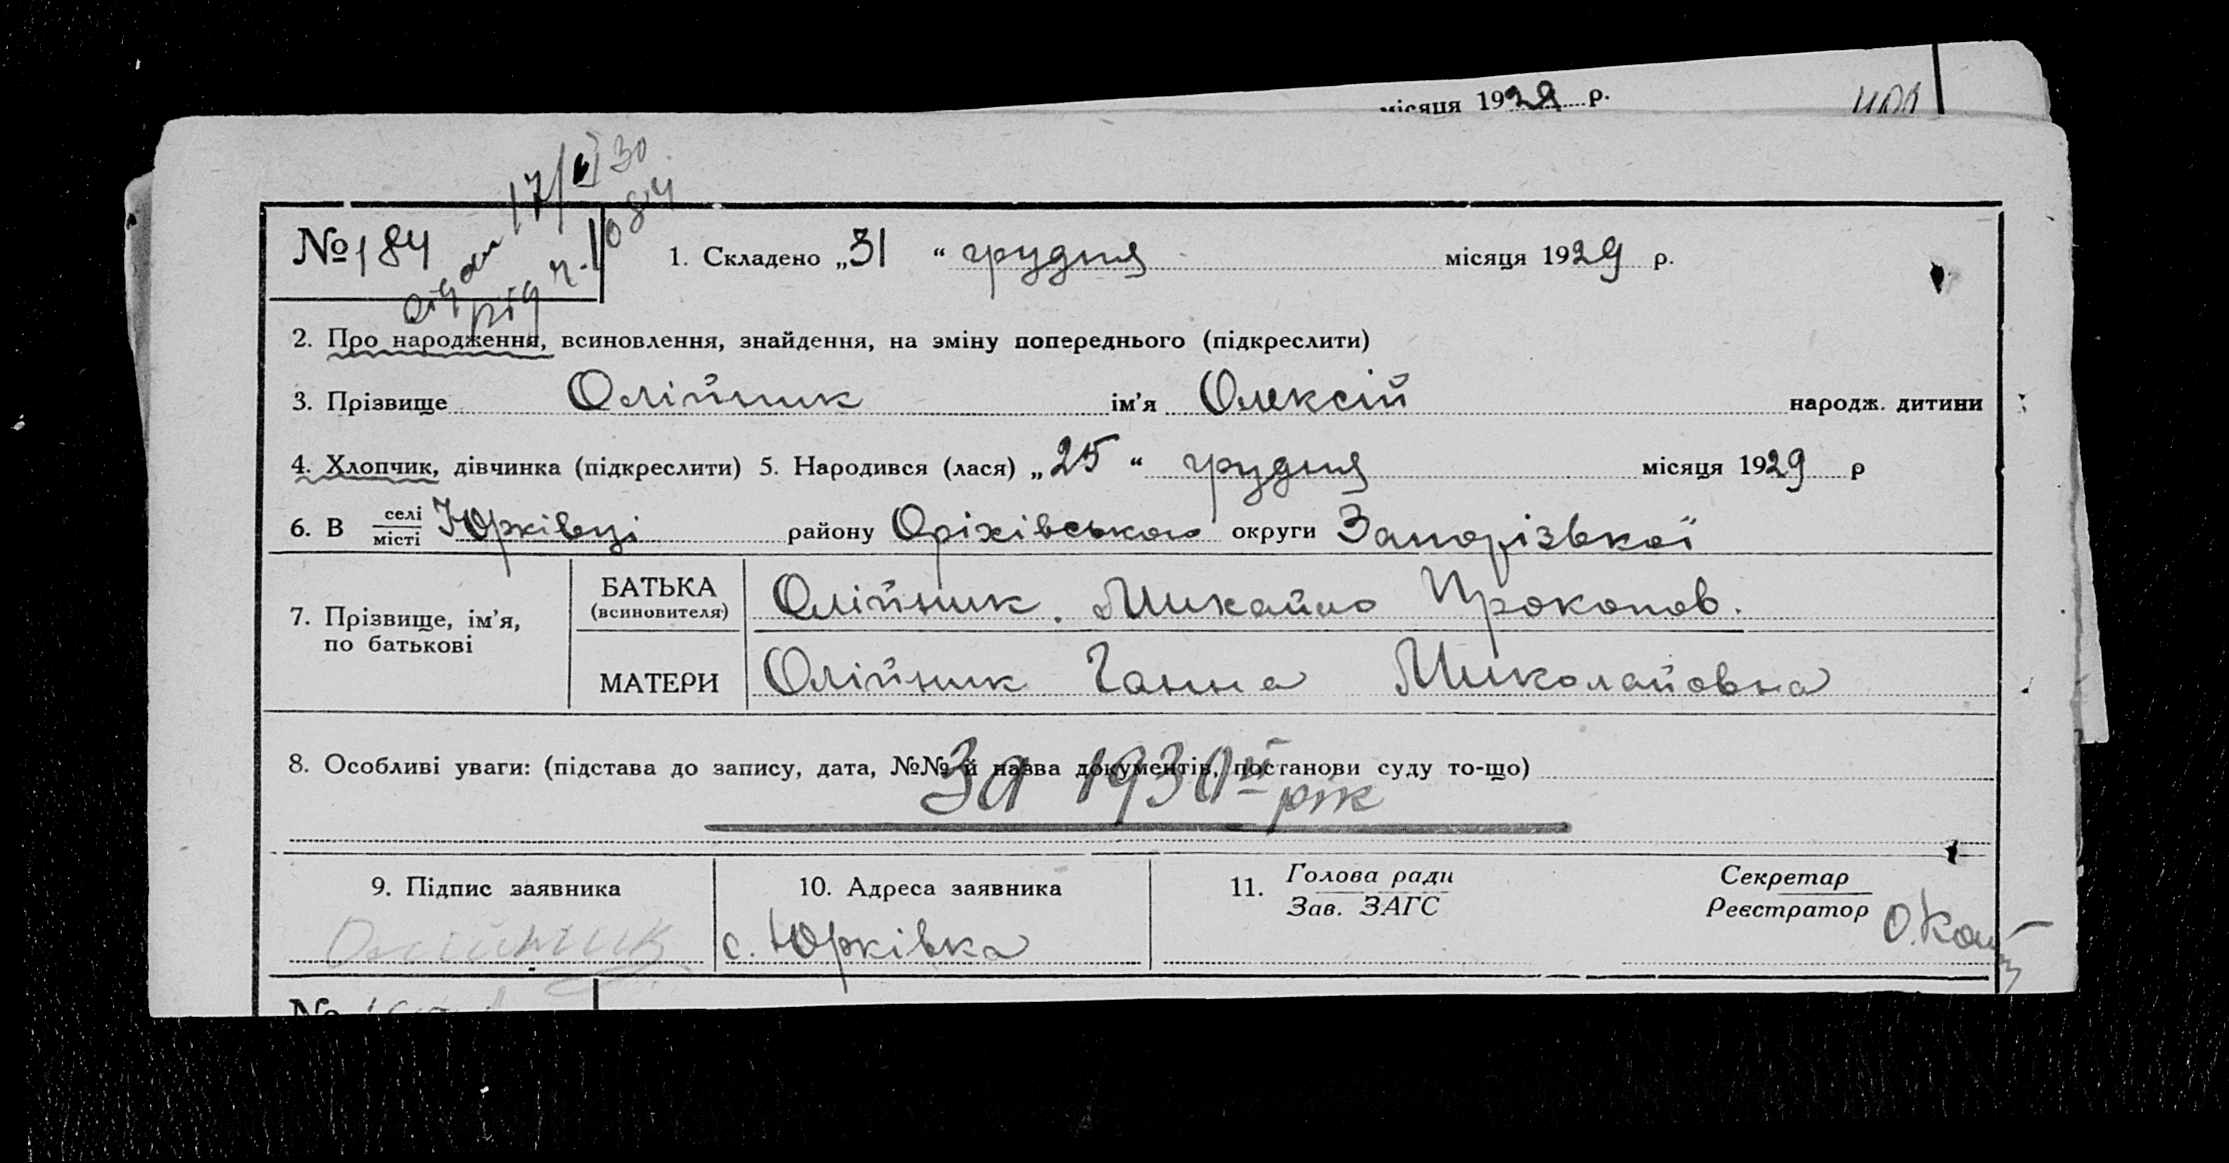 місяця 1929 р.
17/VI 30
№ 184
1. Складено „31“ грудня місяця 1929 р.
2. Про народження, всиновлення, знайдення, на зміну попереднього (підкреслити)
3. Прізвище Олійник ім’я Олексій народж. дитини
4. Хлопчик, дівчинка (підкреслити) 5. Народився (лася) „25“ грудня місяця 1929 р
6. В селі місті Юрківці району Оріхівського округи Запорізької
7. Прізвище, ім’я, по батькові
БАТЬКА (всиновителя) Олійник Михайло Прокопов.
МАТЕРИ Олійник Ганна Миколайовна
8. Особливі уваги: (підстава до запису, дата, №№ й назва документів, постанови суду то-що)
За 1930й рік
9. Підпис заявника 10. Адреса заявника 11. Голова ради Зав. ЗАГС Секретар Реєстратор
Олійник с. Юрківка
№